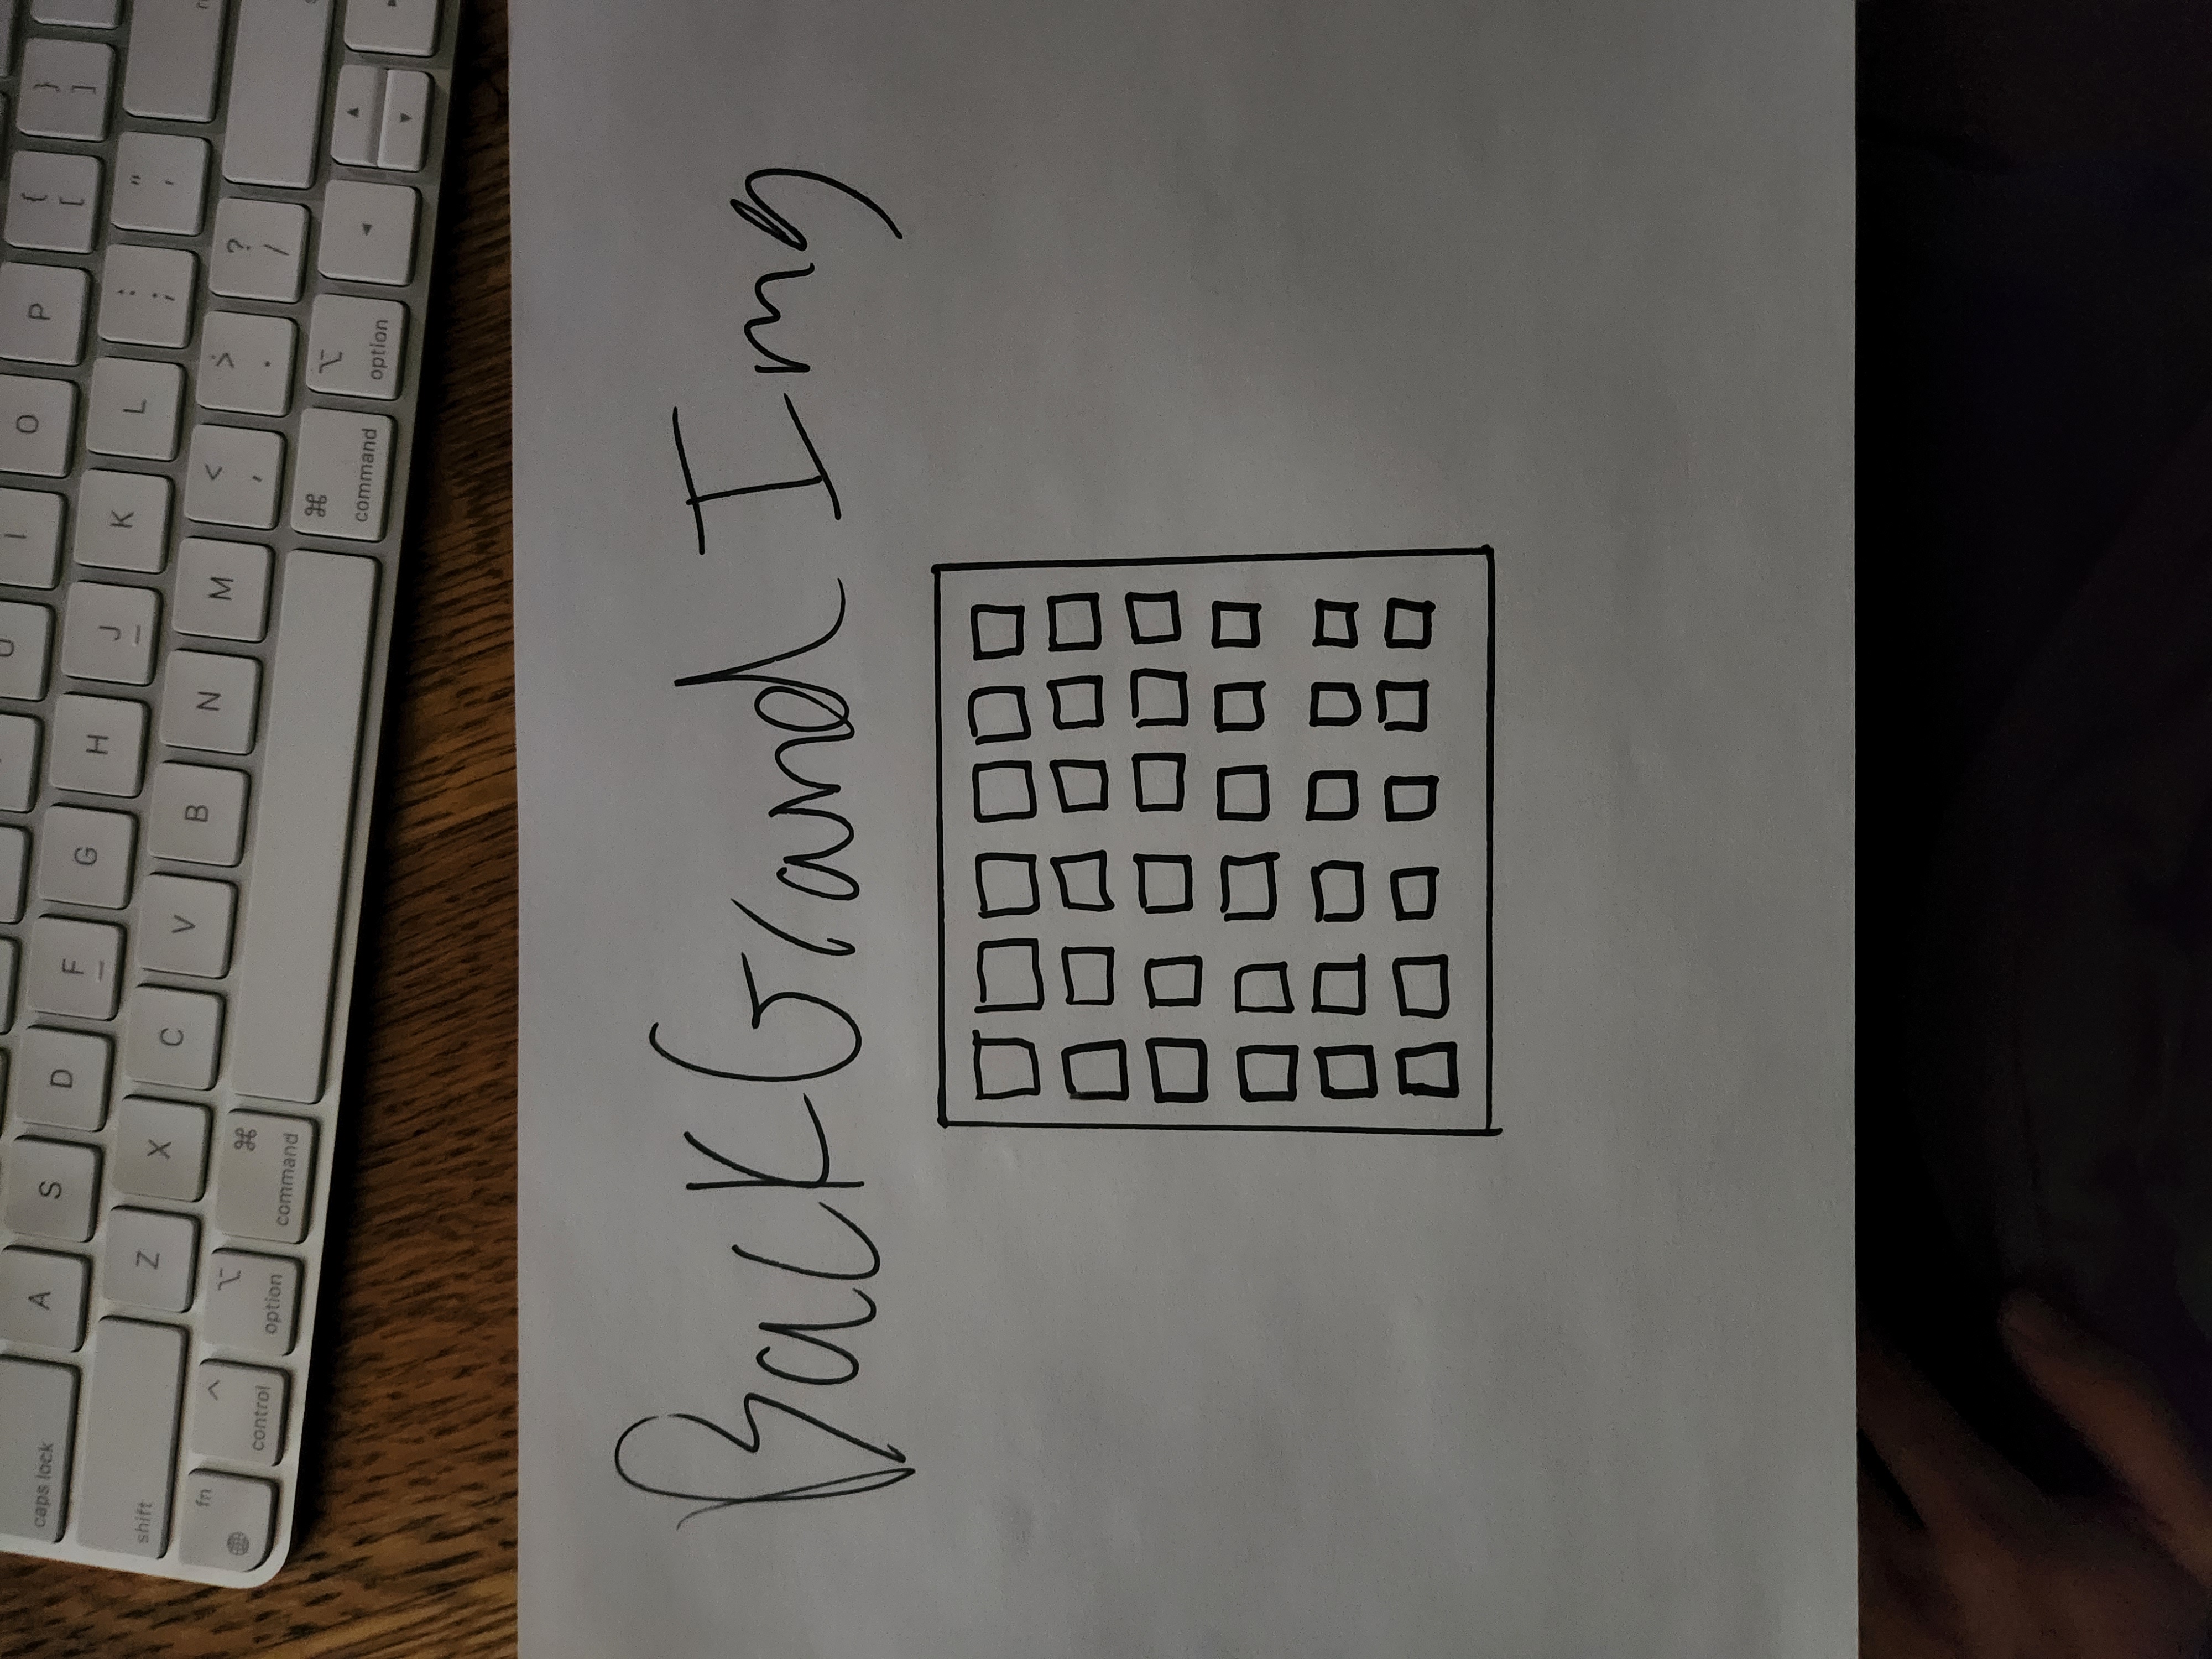 U I O P { [ } ]
caps lock A S D F G H J K L : ; " '
shift Z X C V B N M < , > . ? /
fn control option command command option
BackGrand Img